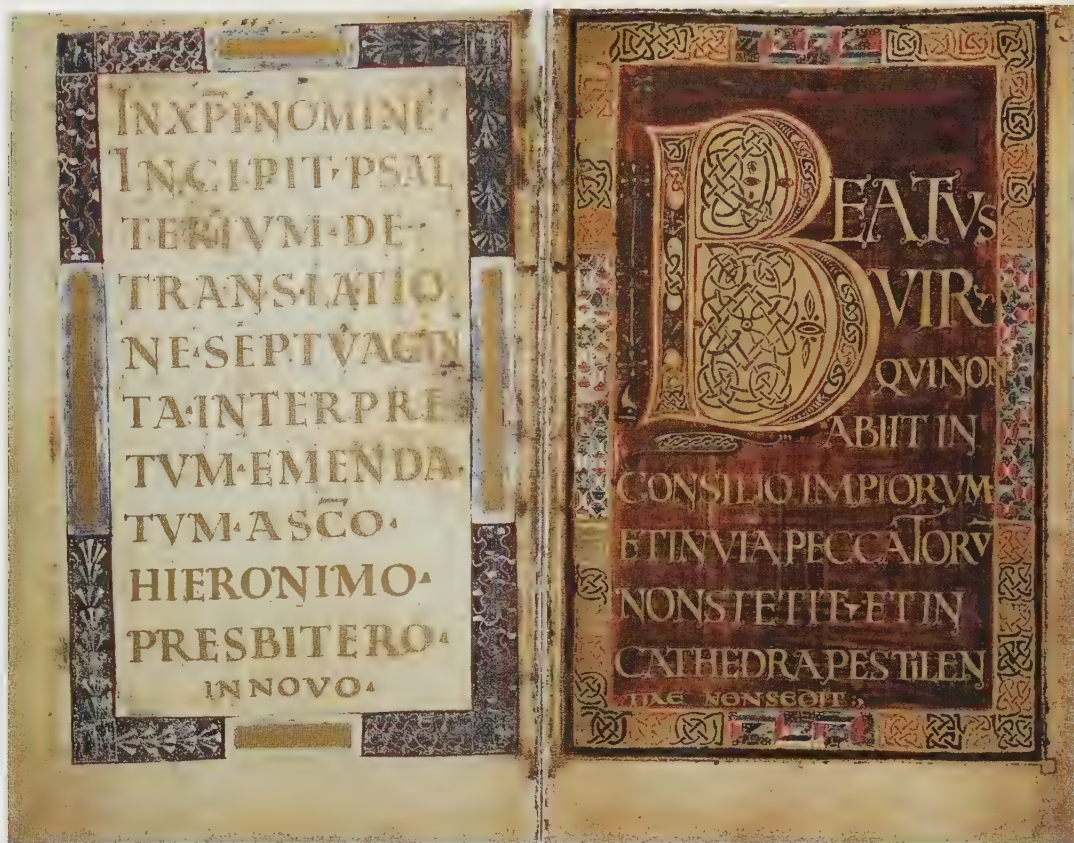 INXP̄I·NOMINE·
INCIPIT·PSAL
TERIVM·DE·
TRANSLATIO
NE·SEPTVAGIN
TA·INTERPRE
TVM·EMENDA·
TVM·A SC̄O·
HIERONIMO·
PRESBITERO·
IN NOVO·
BEATVS
VIR·
QVI NON
ABIIT IN
CONSILIO IMPIORVM
ET IN VIA PECCATORV̄
NON STETIT·ET IN
CATHEDRA PESTILEN
TIAE NON SEDIT;